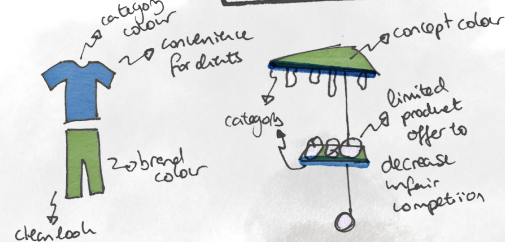 category
colour
convenience
for clients
brand
colour
clean look
concept colour
category
limited
product
offer to
decrease
unfair
competition